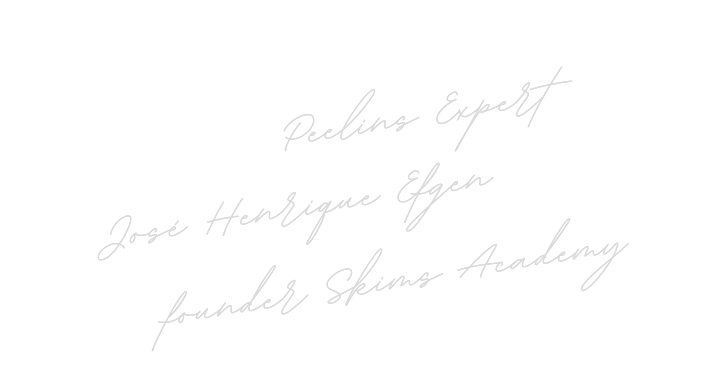 Peelins Expert
José Henrique Efgen
founder Skims Academy